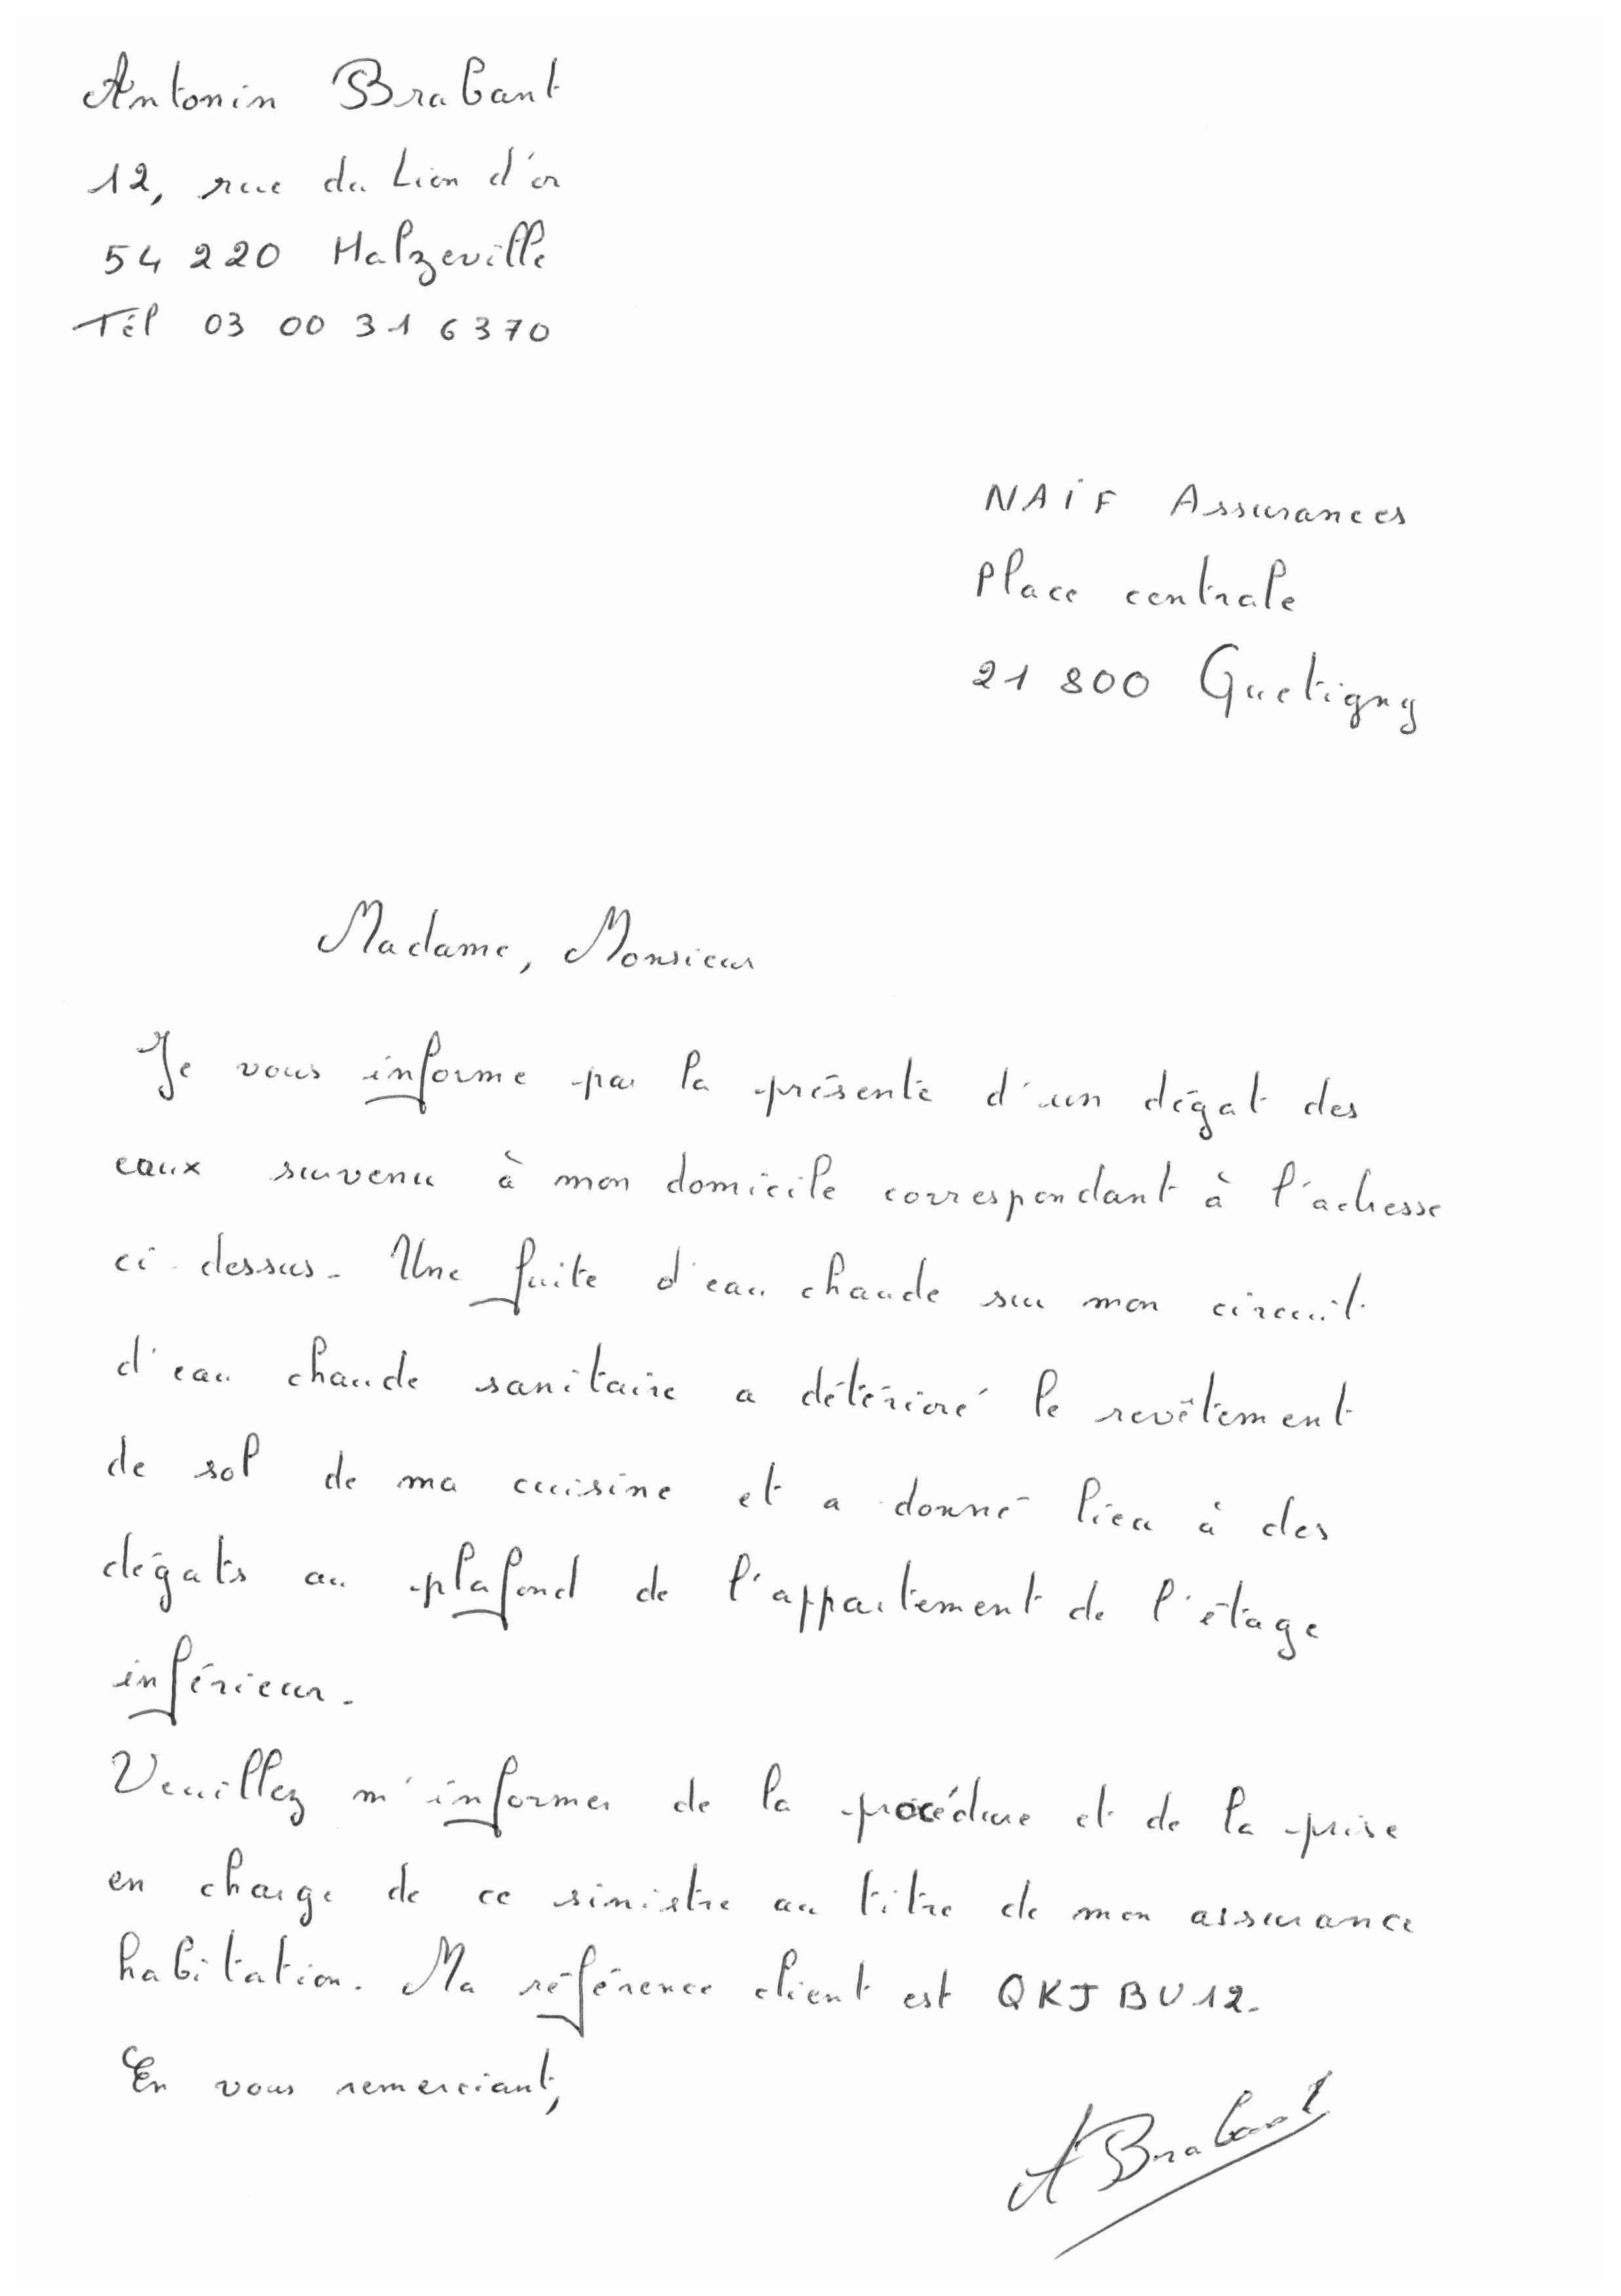 Antonin Brabant
12, rue du Lion d'or
54 220 Malzeville
Tél 03 00 31 63 70
NAIF Assurances
Place centrale
21 800 Quetigny
Madame, Monsieur
Je vous informe par la présente d'un dégat des
eaux survenu à mon domicile correspondant à l'adresse
ci-dessus. Une fuite d'eau chaude sur mon circuit
d'eau chaude sanitaire a détérioré le revêtement
de sol de ma cuisine et a donné lieu à des
dégats au plafond de l'appartement de l'étage
inférieur.
Veuillez m'informer de la procédure et de la prise
en charge de ce sinistre au titre de mon assurance
habitation. Ma référence client est QKJBU12.
En vous remerciant,
A Brabant